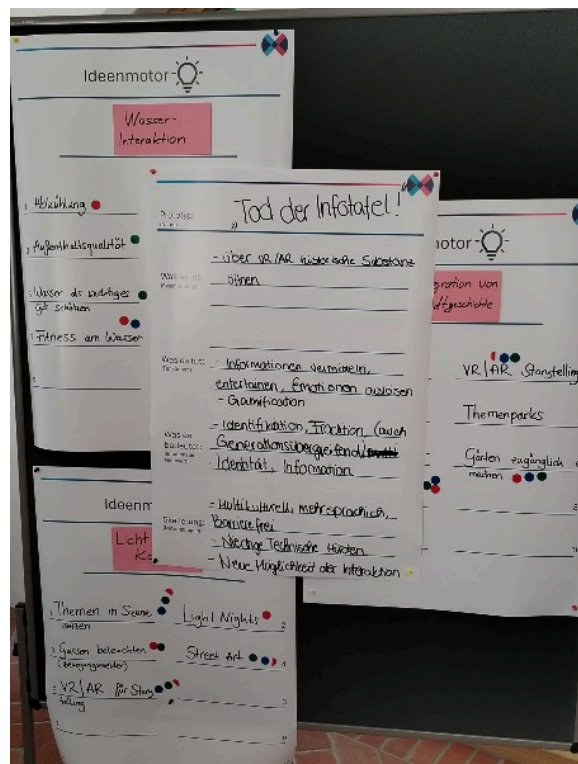 Ideenmotor
Wasser-
Interaktion
1 Abkühlung
2 Aufenthaltsqualität
3 Wasser als wichtiges
Gut schätzen
Fitness am Wasser
Prototyp:
"Tod der Infotafel!
- über VR/AR historische Substanz
öffnen
Was es tut:
- Informationen vermitteln,
entertainen, Emotionen auslösen
- Gamification
Was es
bedeutet:
- Identifikation, Fraktion (auch
Generationsübergreifend)
- Identität, Information
Skalierung:
- Multikulturell, mehrsprachich,
Barrierefrei
- Niedrige Technische Hürden
- Neue Möglichkeit der Interaktion
otor
gration von
dtgeschichte
VR/AR Storytelling
Themenparks
Gärten zugänglich
machen
Ideenm
Licht
1 Themen in Szene
setzen
Light Nights
2
3 Gassen beleuchten
(Bewegungsmelder)
Street Art
4
5 VR/AR für Story
telling